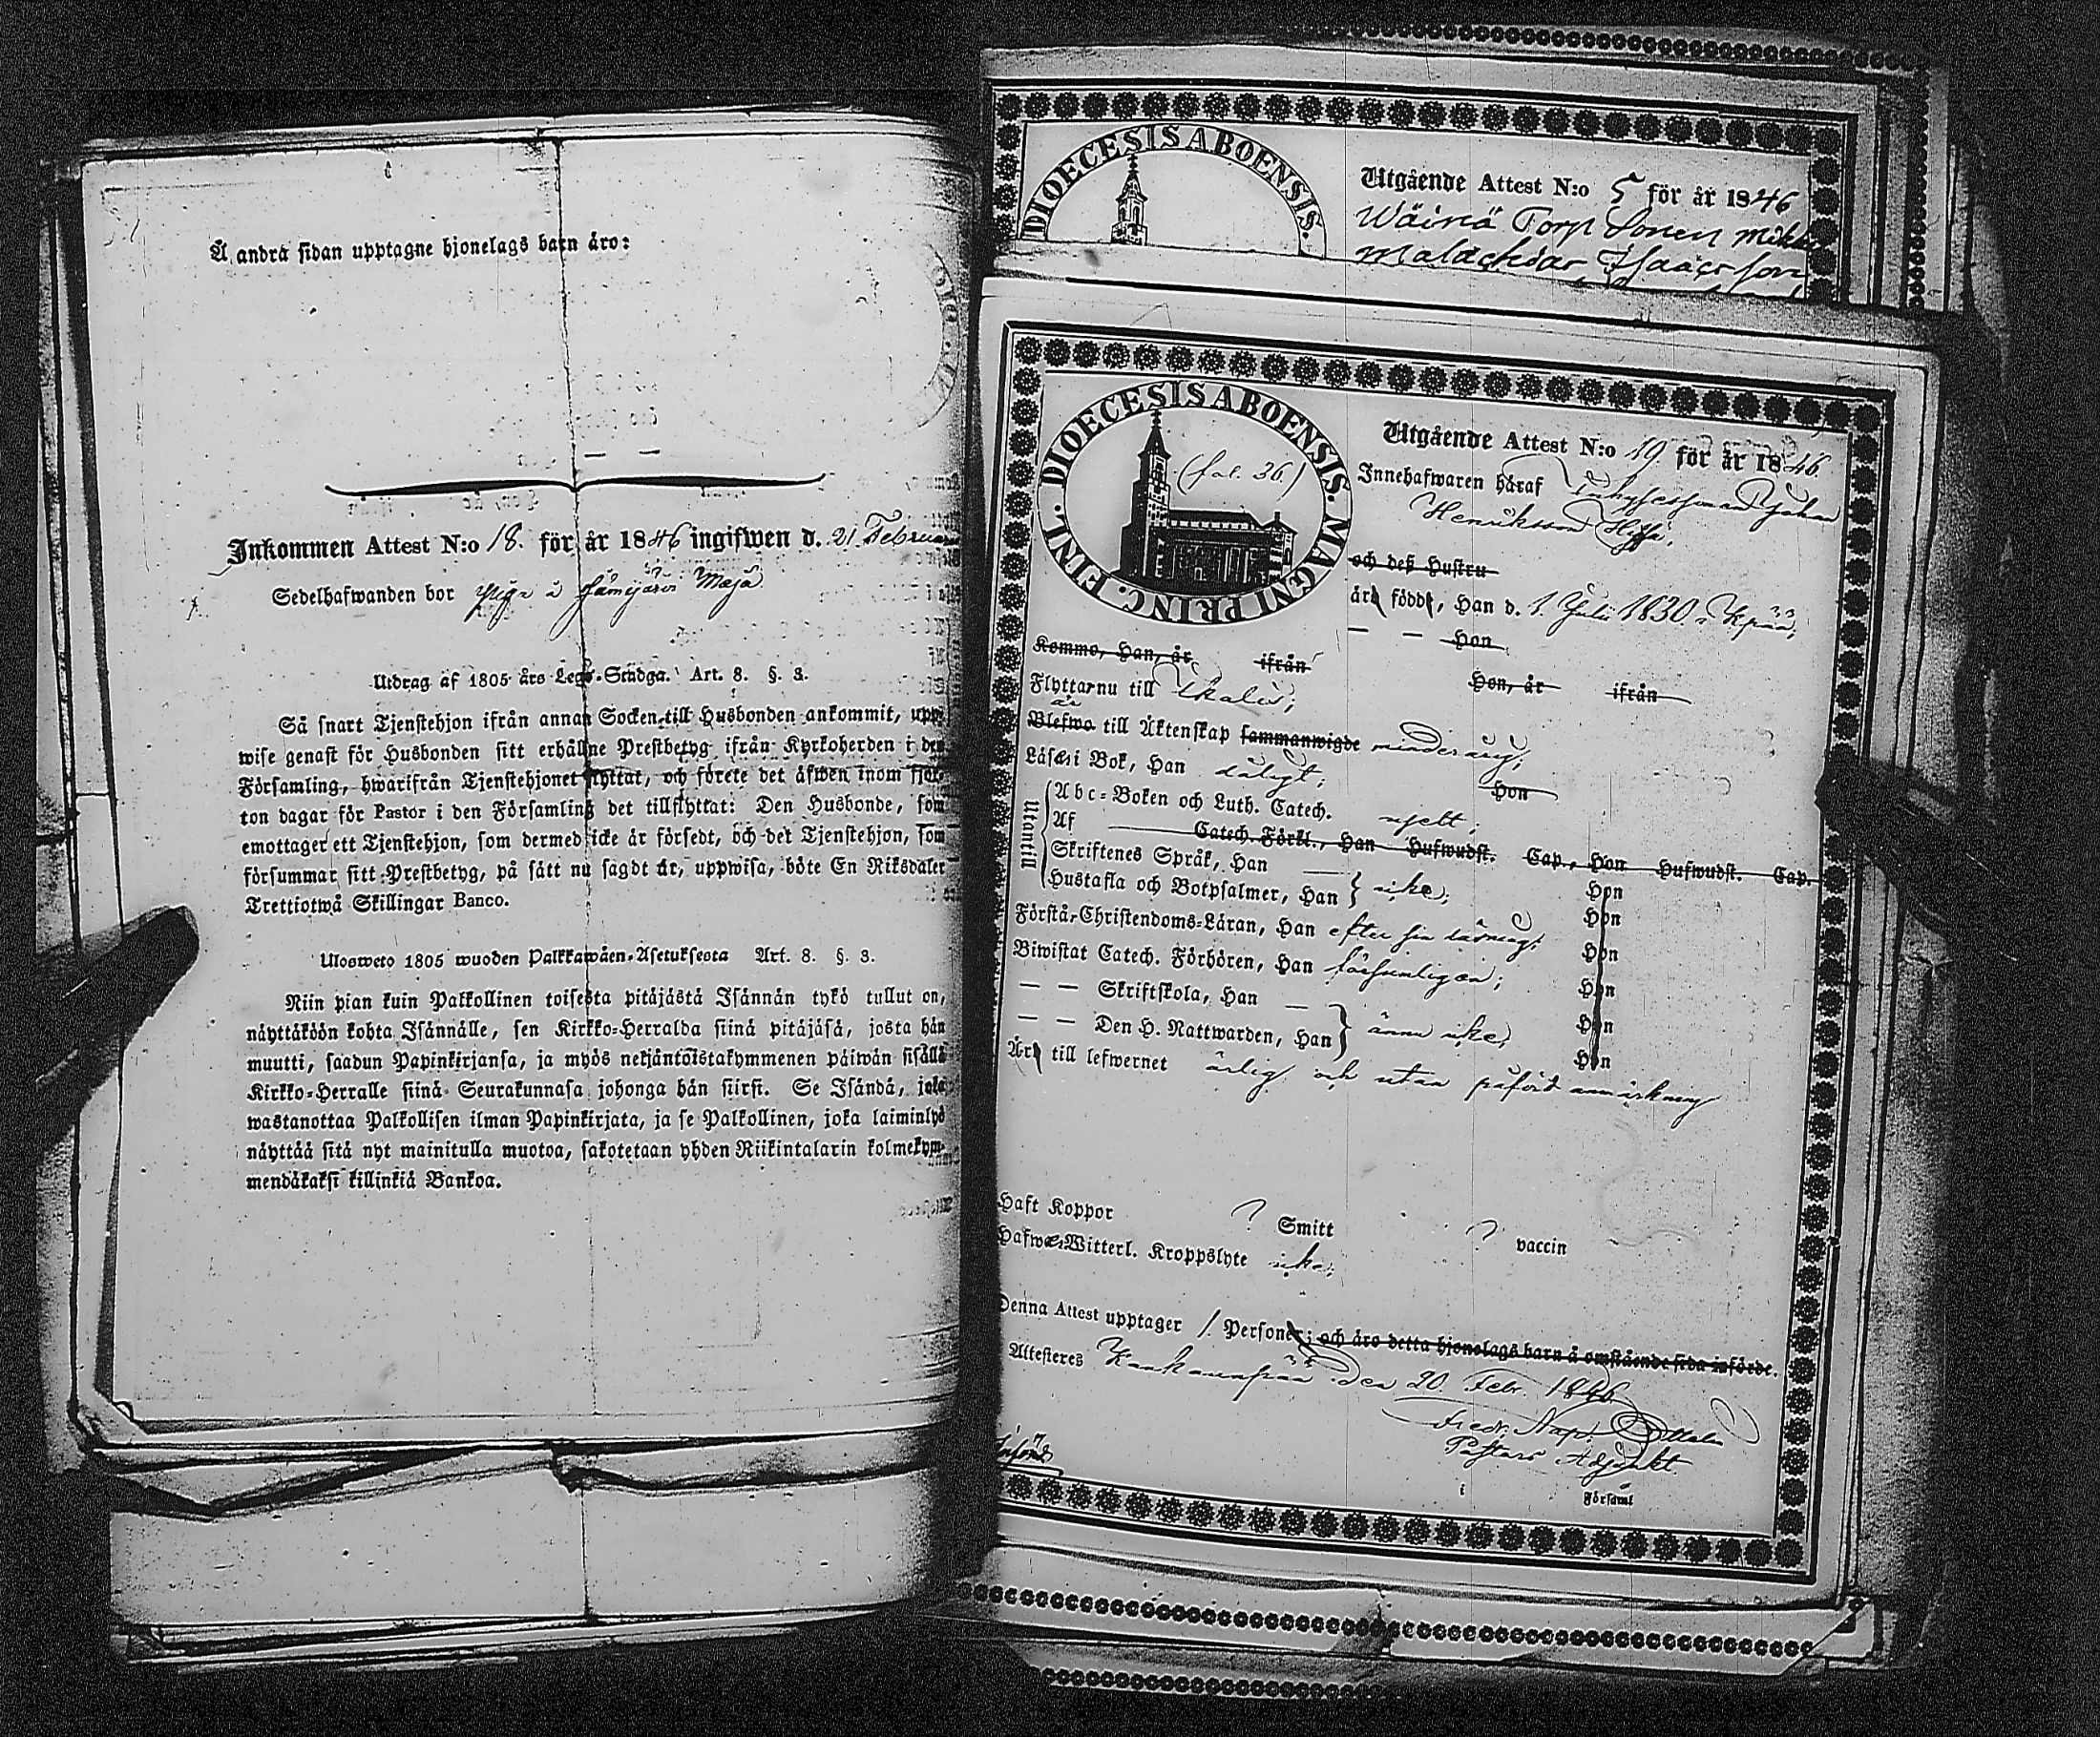 Å andra sidan upptagne hjonelags barn äro:
Inkommen Attest N:o 18. för år 1846 ingifwen d. 21 Februar
Sedelhafwanden bor piga i Maja
Utdrag af 1805 års Lego-Stadga. Art. 8. §. 3.
Så snart Tjenstehjon ifrån annan Socken till Husbonden ankommit, upp-
wise genast för Husbonden sitt erhållne Prestbetyg ifrån Kyrkoherden i den
Församling, hwarifrån Tjenstehjonet flyttat, och förete det äfwen inom fjor-
ton dagar för Pastor i den Församling det tillflyttat: Den Husbonde, som
emottager ett Tjenstehjon, som dermed icke är försedt, och det Tjenstehjon, som
försummar sitt Prestbetyg, på sätt nu sagdt är, uppwisa, böte En Riksdaler
Trettiotwå Skillingar Banco.
Ulosweto 1805 wuoden Palkkawäen-Asetuksesta Art. 8. §. 3.
Niin pian kuin Palkollinen toisesta pitäjästä Isännän tykö tullut on,
näyttäköön kohta Isännälle, sen Kirkko-Herralda siinä pitäjäsä, josta hän
muutti, saadun Papinkirjansa, ja myös neljäntoistakymmenen päiwän sisällä
Kirkko-Herralle siinä Seurakunnasa johonga hän siirsi. Se Isändä, joka
wastanottaa Palkollisen ilman Papinkirjata, ja se Palkollinen, joka laiminlyö
näyttää sitä nyt mainitulla muotoa, sakotetaan yhden Riikintalarin kolmekym-
mendäkaksi killinkiä Bankoa.
DIOECESIS ABOENSIS.
Utgående Attest N:o 5 för år 1846
Wäinä Torp Sonen Mikk
Malachias Isaacsson
DIOECESIS ABOENSIS. MAGNI PRINC. FINL.
(fol. 36.)
Utgående Attest N:o 19. för år 1846
Innehafwaren häraf Johan
Henriksson
och deß Hustru
är född, Han d. 1 Julii 1830 i
— — Hon
Komme, Han, år ifrån Hon, år ifrån
Flyttar nu till Ikalis;
är
Blefwo till Äktenskap sammanwigde minderårig;
Läser i Bok, Han dåligt; Hon
Utantill
Abc-Boken och Luth. Catech. njelt;
Af Catech. Förkl., Han Hufwudst. Cap., Hon Hufwudst. Cap.
Skriftenes Språk, Han — Hon
Hustafla och Botpsalmer, Han } icke; Hon
Förstår Christendoms-Läran, Han efter sin Hon
Biwistat Catech. Förhören, Han försvarligen; Hon
— — Skriftskola, Han — Hon
— — Den H. Nattwarden, Han } ännu icke; Hon
Är till lefwernet ärlig och utan påförd anmärkning
Haft Koppor ? Smitt ? vaccin
Hafwa Witterl. Kroppslyte icke;
Denna Attest upptager 1. Personer; och äro detta hjonelags barn å omstående sida införde.
Attesteres Kankaanpää den 20 Febr. 1846
Fredr. Nap.
Pastors Adjunkt.
Införd
i Förſaml